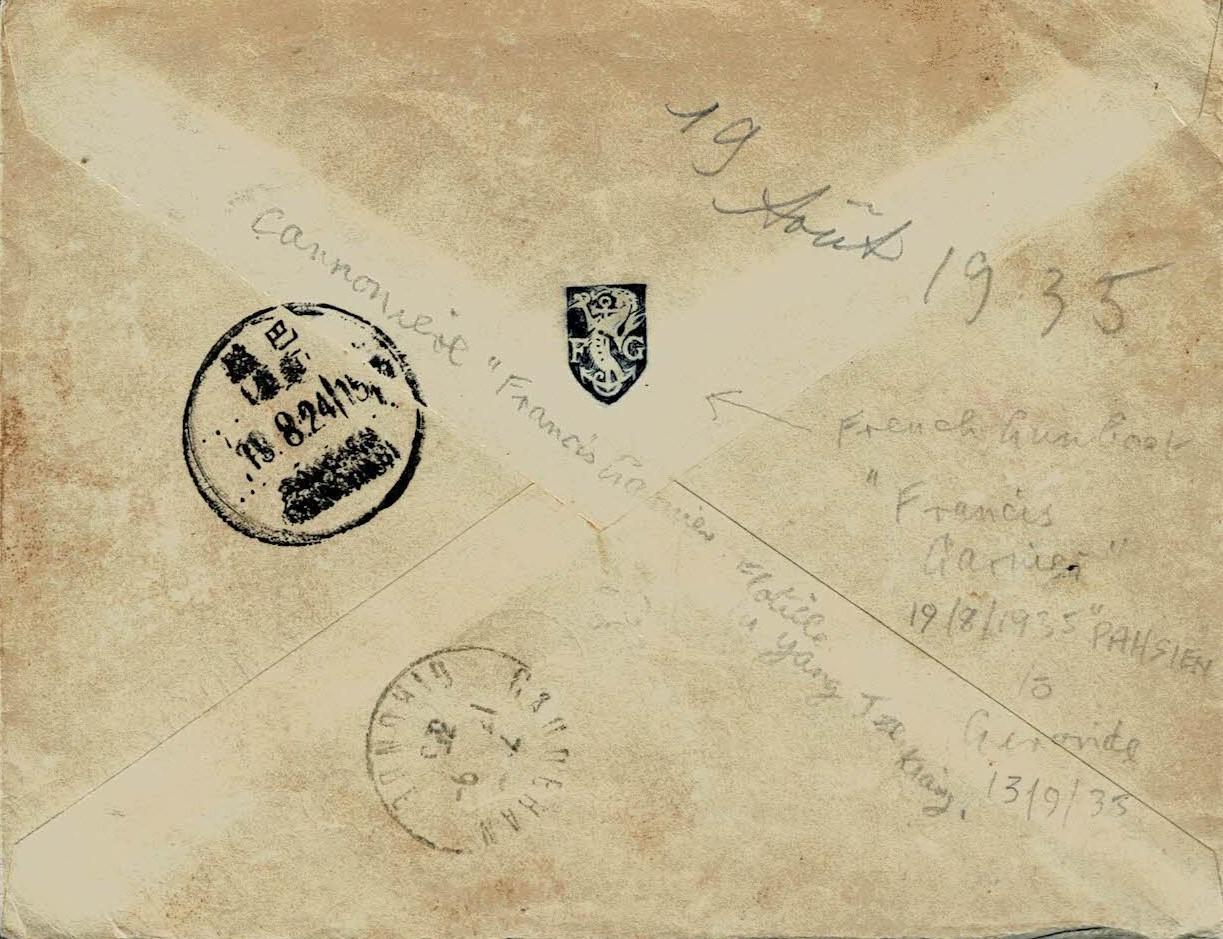 19
Août 1935
Cannonière "Francis Garnier
flotille
a Yang Tse Kiang.
F G
巴
19.8.24/15
French Gun boat
"Francis
Garnier"
19/8/1935 "PAHSIEN
to
Gironde
13/9/35
CAUDERAN
GIRONDE